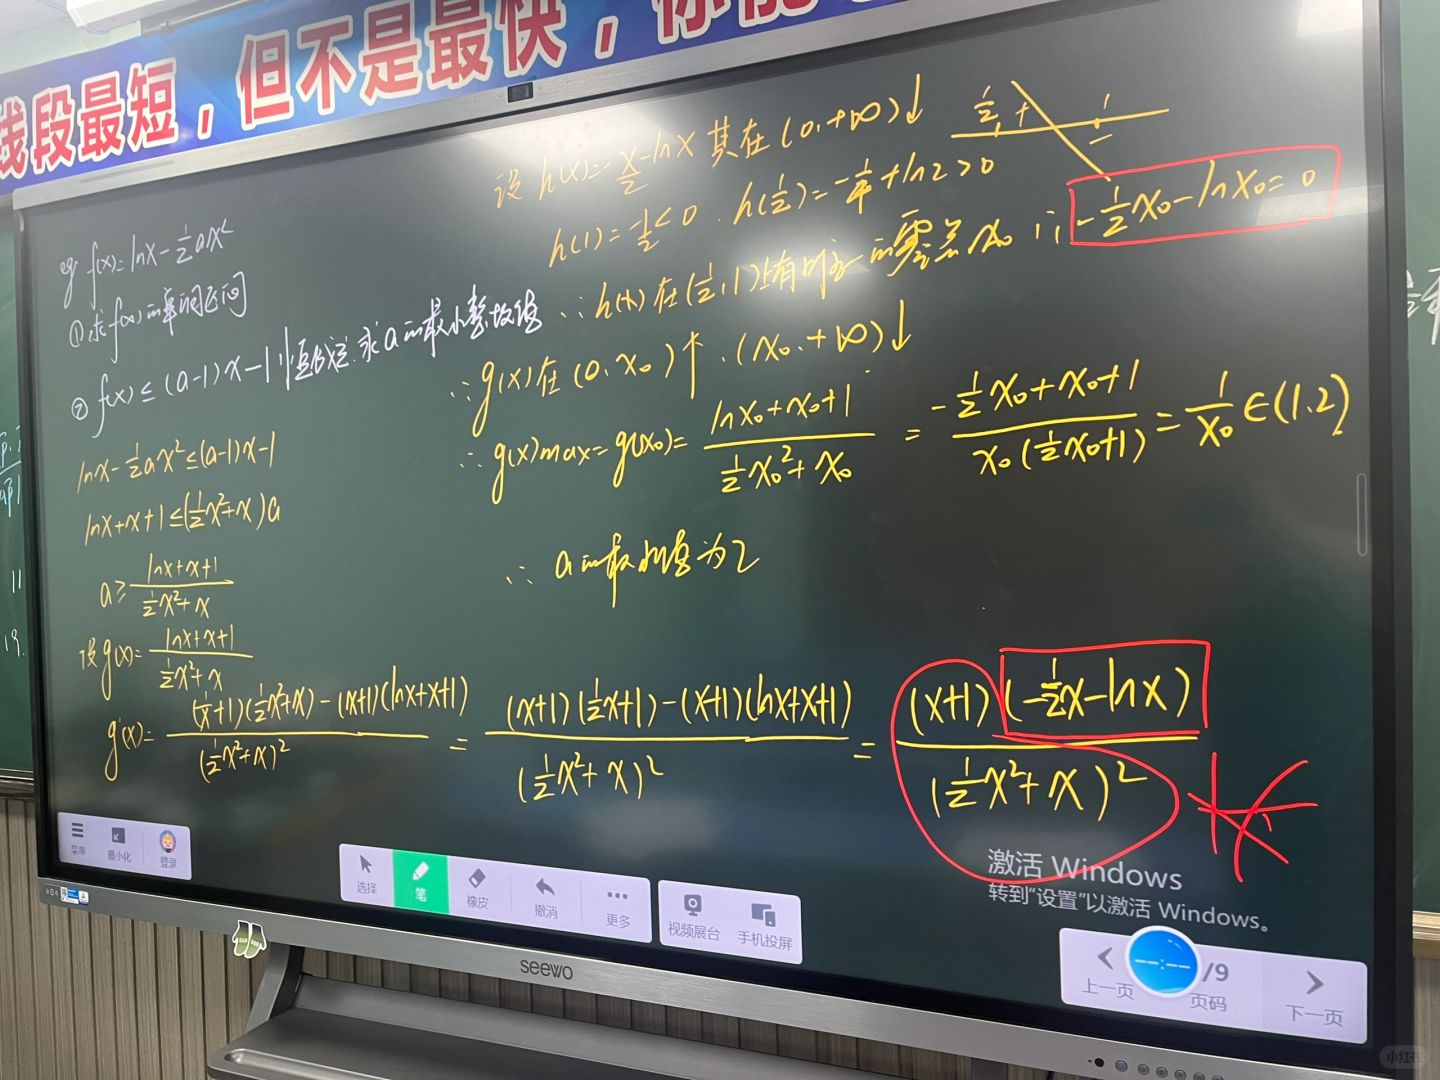 线段最短，但不是最快，你能
eg f(x)=lnx-½ax²
①求f(x)的单调区间
② f(x)≤(a-1)x-1恒成立.求a的最小整数值
lnx-½ax²≤(a-1)x-1
lnx+x+1≤(½x²+x)a
a≥(lnx+x+1)/(½x²+x)
设g(x)=(lnx+x+1)/(½x²+x)
g'(x)=((1/x+1)(½x²+x)-(x+1)(lnx+x+1))/(½x²+x)² = ((x+1)(½x+1)-(x+1)(lnx+x+1))/(½x²+x)² = (x+1)(-½x-lnx)/(½x²+x)²
设 h(x)=-x/2-lnx 其在(0,+∞)↓
½ + 1 -
h(1)=-½<0. h(½)=-¼+ln2>0
∴h(x)在(½,1)上有的零点x₀ ∴ -½x₀-lnx₀=0
∴g(x)在(0,x₀)↑.(x₀,+∞)↓
∴g(x)max=g(x₀)=(lnx₀+x₀+1)/(½x₀²+x₀) = (-½x₀+x₀+1)/(x₀(½x₀+1)) = 1/x₀∈(1.2)
∴ a的最小值为2
激活 Windows
转到“设置”以激活 Windows。
菜单 最小化 登录
选择 笔 橡皮 撤消 更多
视频展台 手机投屏
上一页 --:-- /9 页码 下一页
seewo
11
19.
小红书